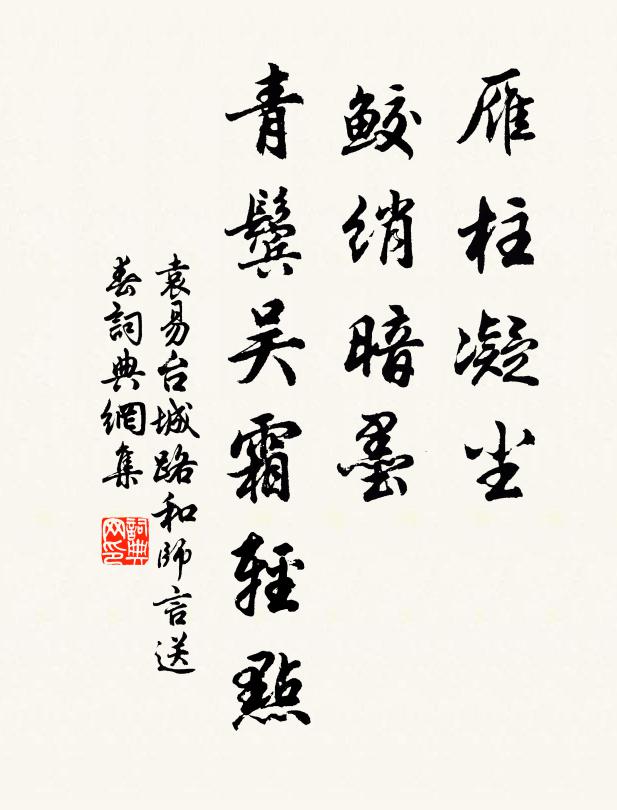 雁柱凝尘
鲛绡暗墨
青鬓吴霜轻點
袁易台城路和師言送
春詞典網集
詞典网印